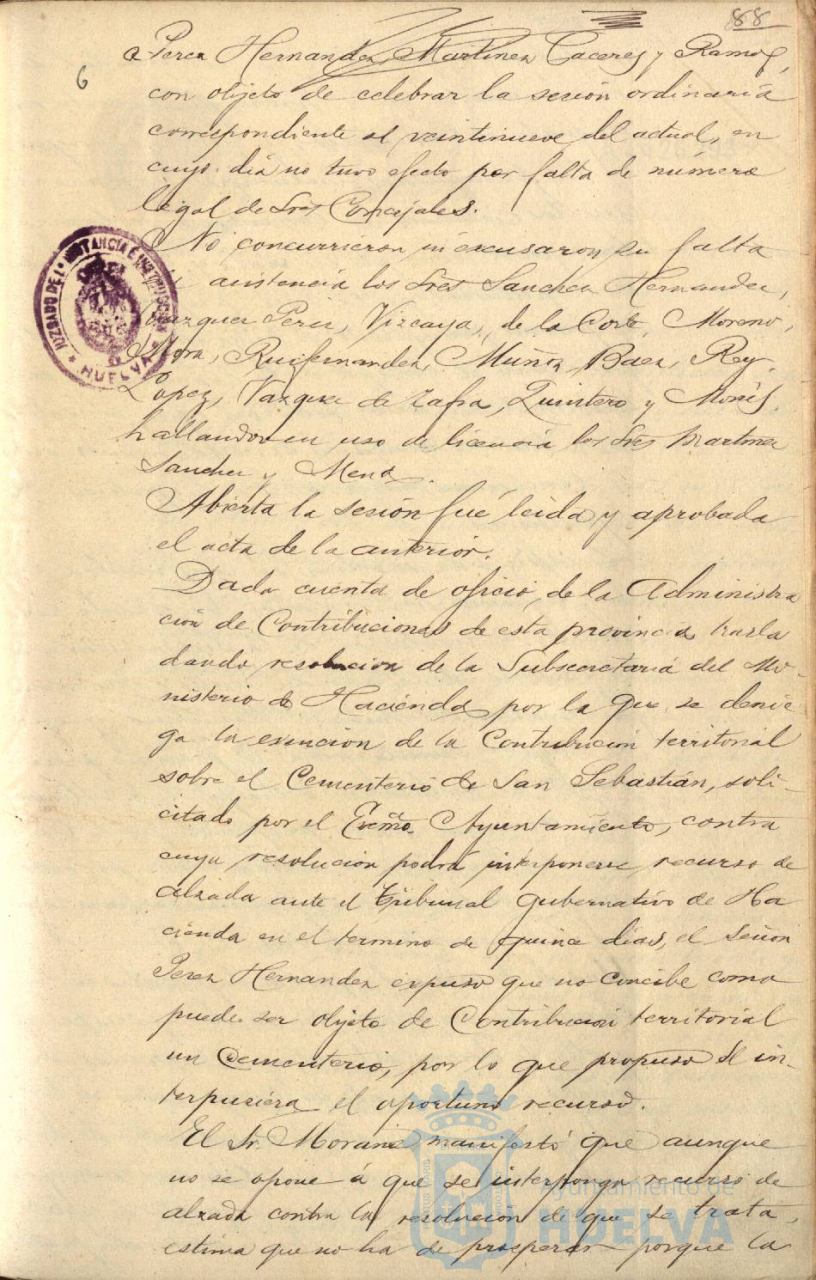 88
6
Perez Hernandez, Martinez Caceres y Ramos,
con objeto de celebrar la sesión ordinaria
correspondiente al veintinueve del actual, en
cuyo dia no tuvo efecto por falta de número
legal de Sres Concejales.
No concurrieron ni excusaron su falta
asistencia los Sres Sanchez Hernandez,
Vazquez Perez, Vizcaya, de la Corte, Moreno,
Mora, Ruifernandez, Muñoz, Baez, Rey,
López, Vazquez de Zafra, Quintero y
hallandose en uso de licencia los Sres Martinez
Sanchez y Mena.
Abierta la sesión fué leida y aprobada
el acta de la anterior.
Dada cuenta de oficio, de la Administra
ción de Contribuciones de esta provincia trasla
dando resolucion de la Subsecretaria del Mi-
nisterio de Hacienda por la que se denie
ga la exención de la Contribución territorial
sobre el Cementerio de San Sebastián, soli-
citado por el Excmo. Ayuntamiento, contra
cuya resolución podrá interponerse recurso de
alzada ante el Tribunal gubernativo de Ha
cienda en el termino de quince dias, el Señor
Perez Hernandez expuso que no concibe como
puede ser objeto de Contribución territorial
un Cementerio, por lo que propuso se in-
terpusiera el oportuno recurso.
El Sr. Morano manifestó que aunque
no se opone á que se interponga recurso de
alzada contra la resolución de que se trata,
estima que no ha de prosperar porque la
JUZGADO DE 1ª INSTANCIA E INSTRUCCION
* HUELVA *
Ayuntamiento de
HUELVA